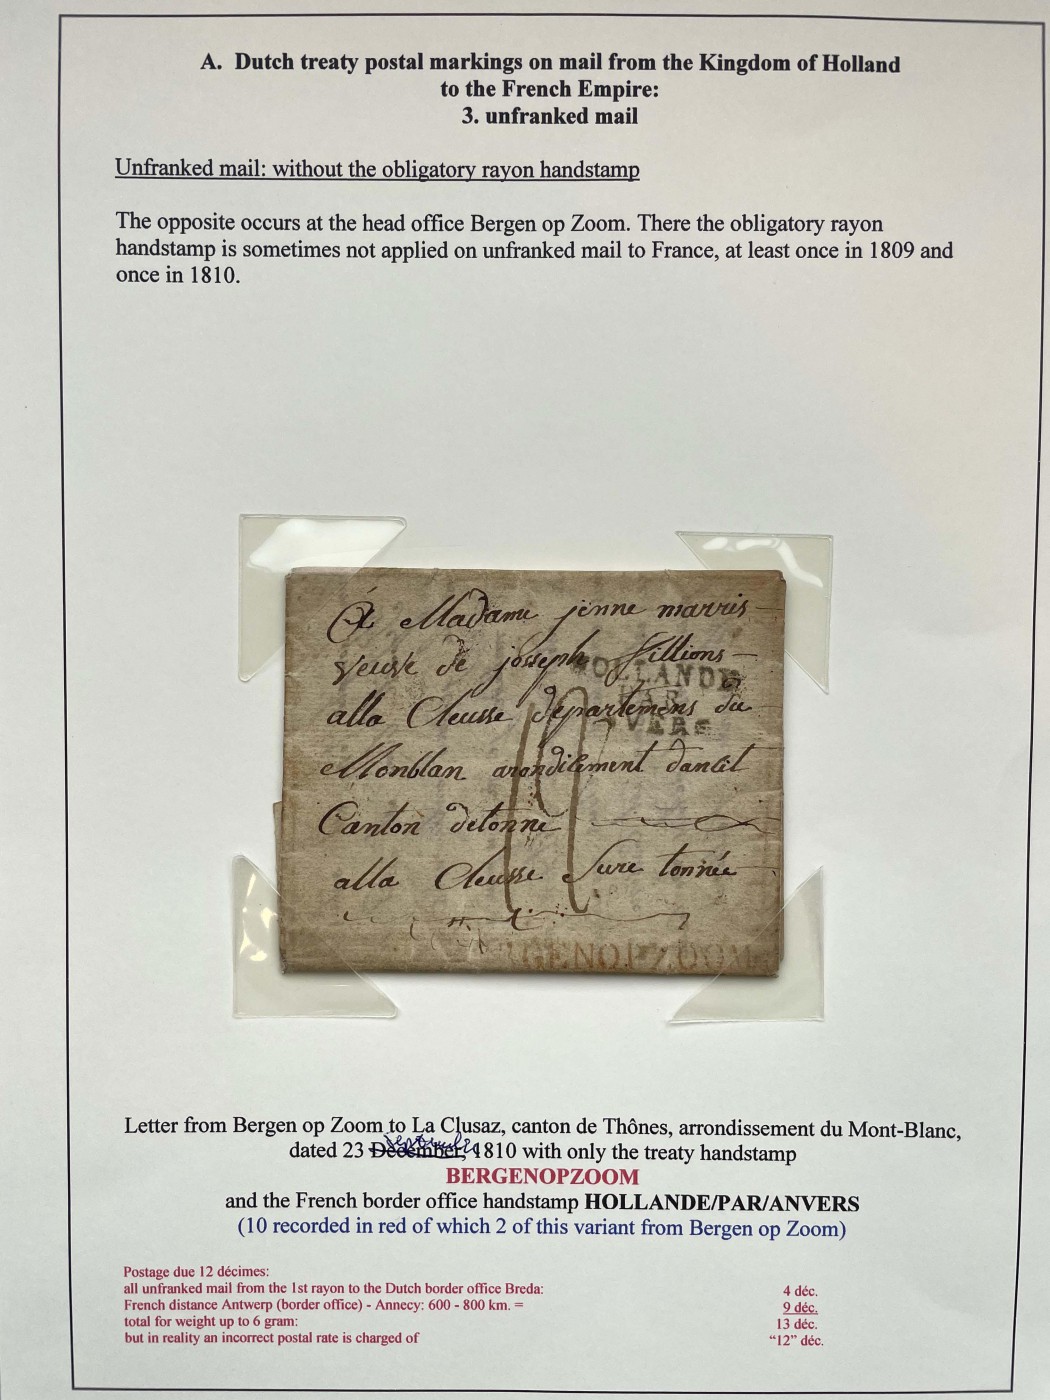 A. Dutch treaty postal markings on mail from the Kingdom of Holland
to the French Empire:
3. unfranked mail
Unfranked mail: without the obligatory rayon handstamp
The opposite occurs at the head office Bergen op Zoom. There the obligatory rayon
handstamp is sometimes not applied on unfranked mail to France, at least once in 1809 and
once in 1810.
À Madame jenne marris
veuve de josseph fillions
HOLLANDE
PAR
alla Cleusse departemens du
VERS
Monblan arondicement dancil
12
Canton detonne
alla Cleusse Sure tonnée
GENOPZOOM
Letter from Bergen op Zoom to La Clusaz, canton de Thônes, arrondissement du Mont-Blanc,
september
dated 23 December, 1810 with only the treaty handstamp
BERGENOPZOOM
and the French border office handstamp HOLLANDE/PAR/ANVERS
(10 recorded in red of which 2 of this variant from Bergen op Zoom)
Postage due 12 décimes:
all unfranked mail from the 1st rayon to the Dutch border office Breda: 4 déc.
French distance Antwerp (border office) - Annecy: 600 - 800 km. = 9 déc.
total for weight up to 6 gram: 13 déc.
but in reality an incorrect postal rate is charged of "12" déc.